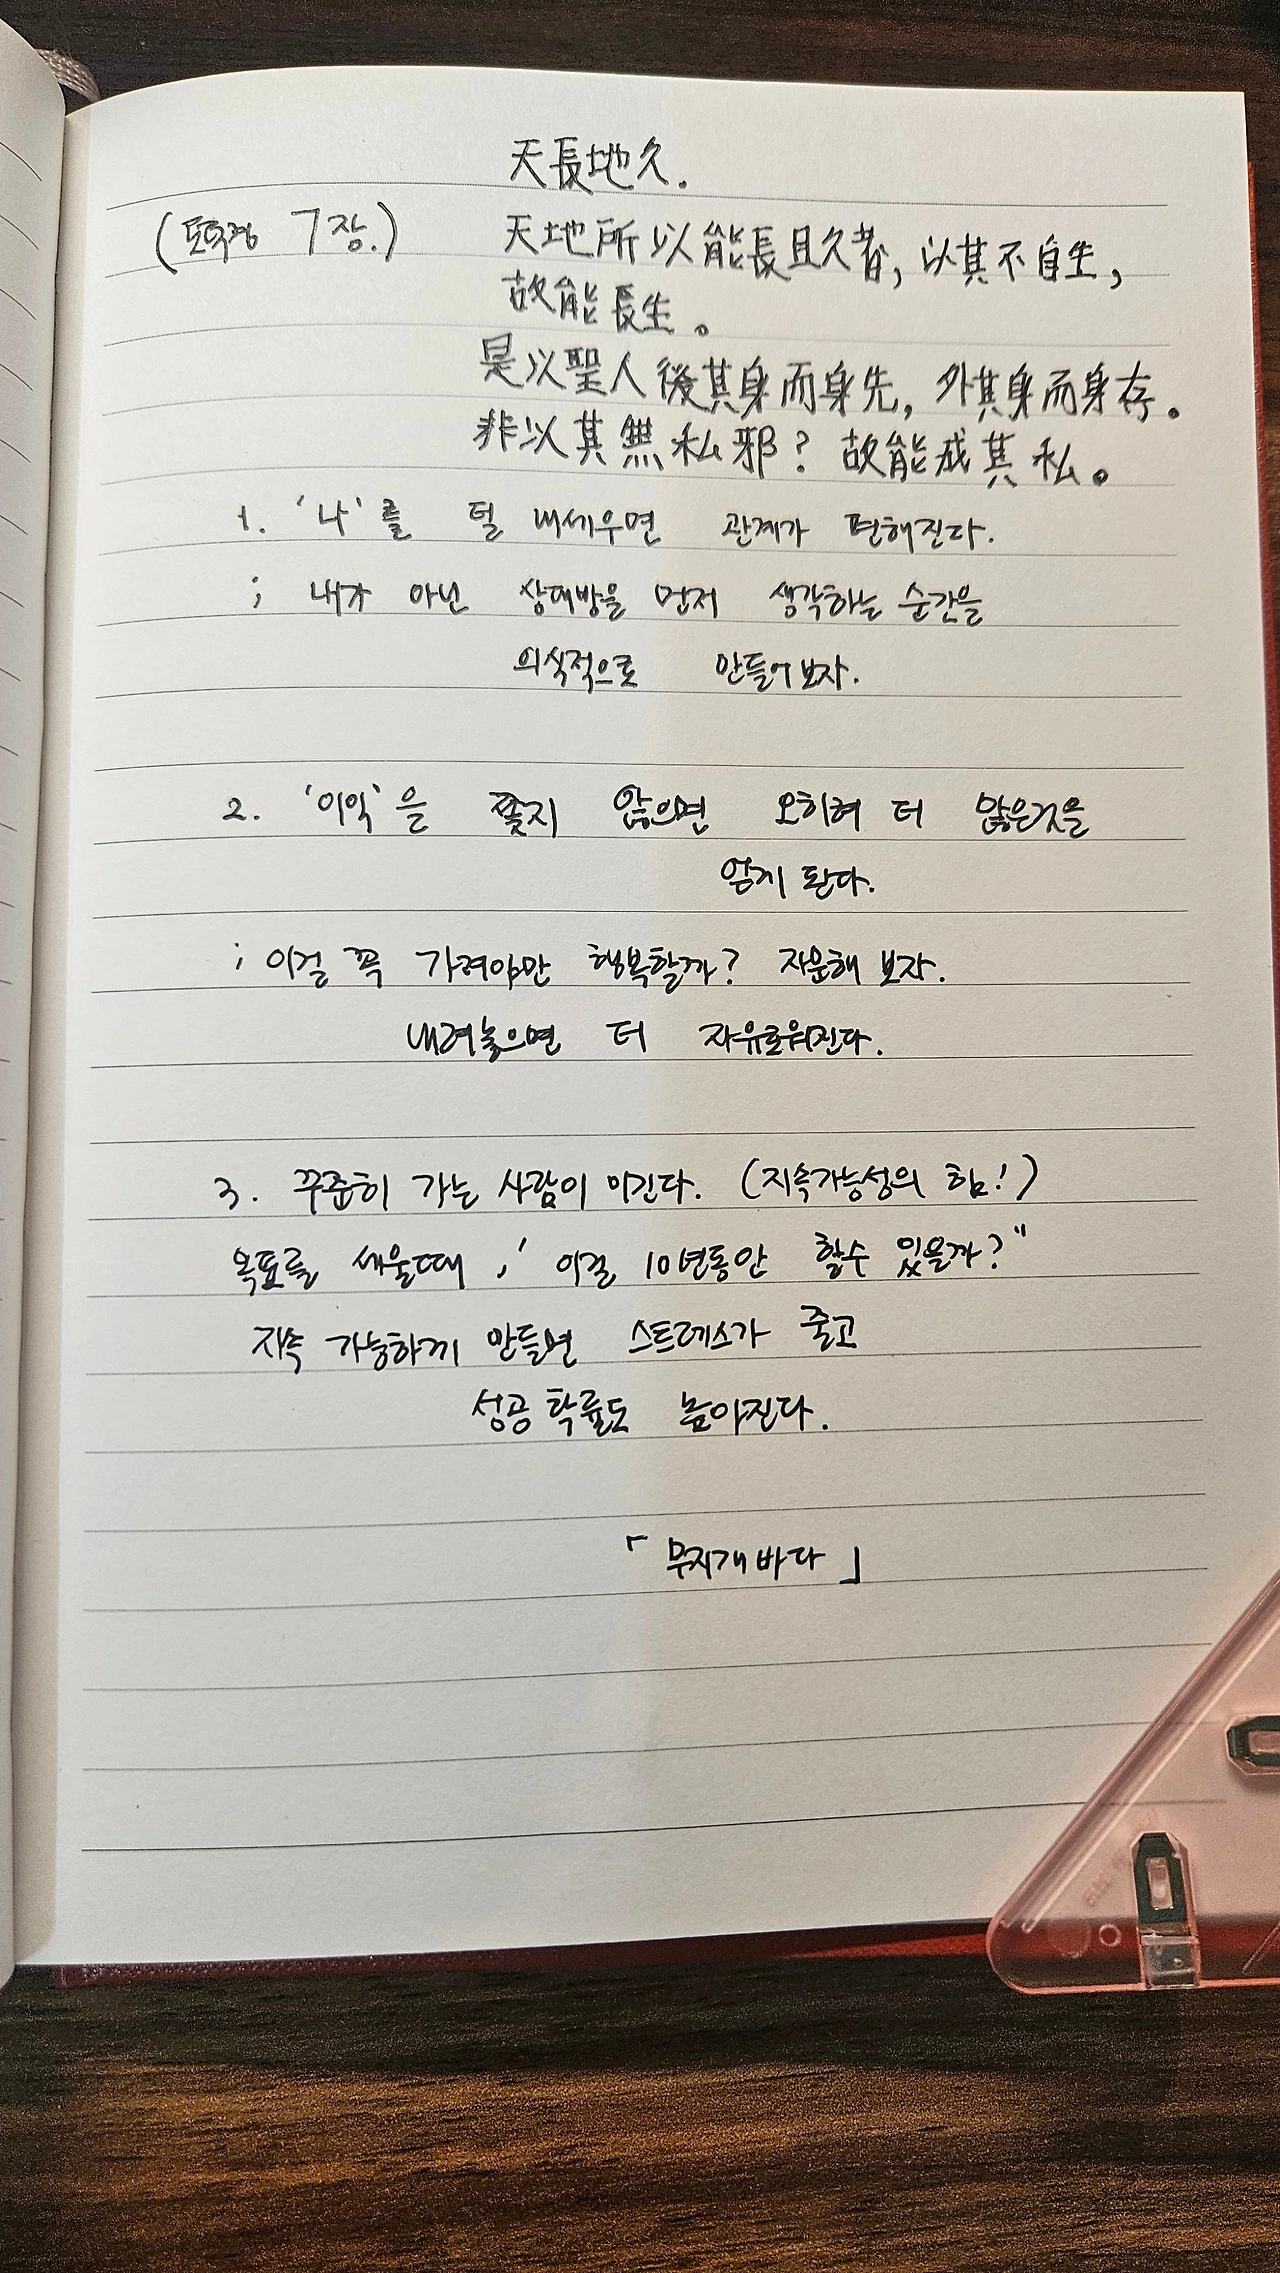 天長地久.
(도덕경 7장.) 天地所以能長且久者, 以其不自生,
故能長生。
是以聖人後其身而身先, 外其身而身存。
非以其無私邪? 故能成其私。
1. '나'를 덜 내세우면 관계가 편해진다.
; 내가 아닌 상대방을 먼저 생각하는 순간을
의식적으로 만들어보자.
2. '이익'을 쫓지 않으면 오히려 더 많은것을
얻게 된다.
; 이걸 꼭 가져야만 행복할까? 자문해 보자.
내려놓으면 더 자유로워진다.
3. 꾸준히 가는 사람이 이긴다. (지속가능성의 힘!)
목표를 세울때 ; ' 이걸 10년동안 할수 있을까?"
지속 가능하게 만들면 스트레스가 줄고
성공 확률도 높아진다.
「무지개바다」